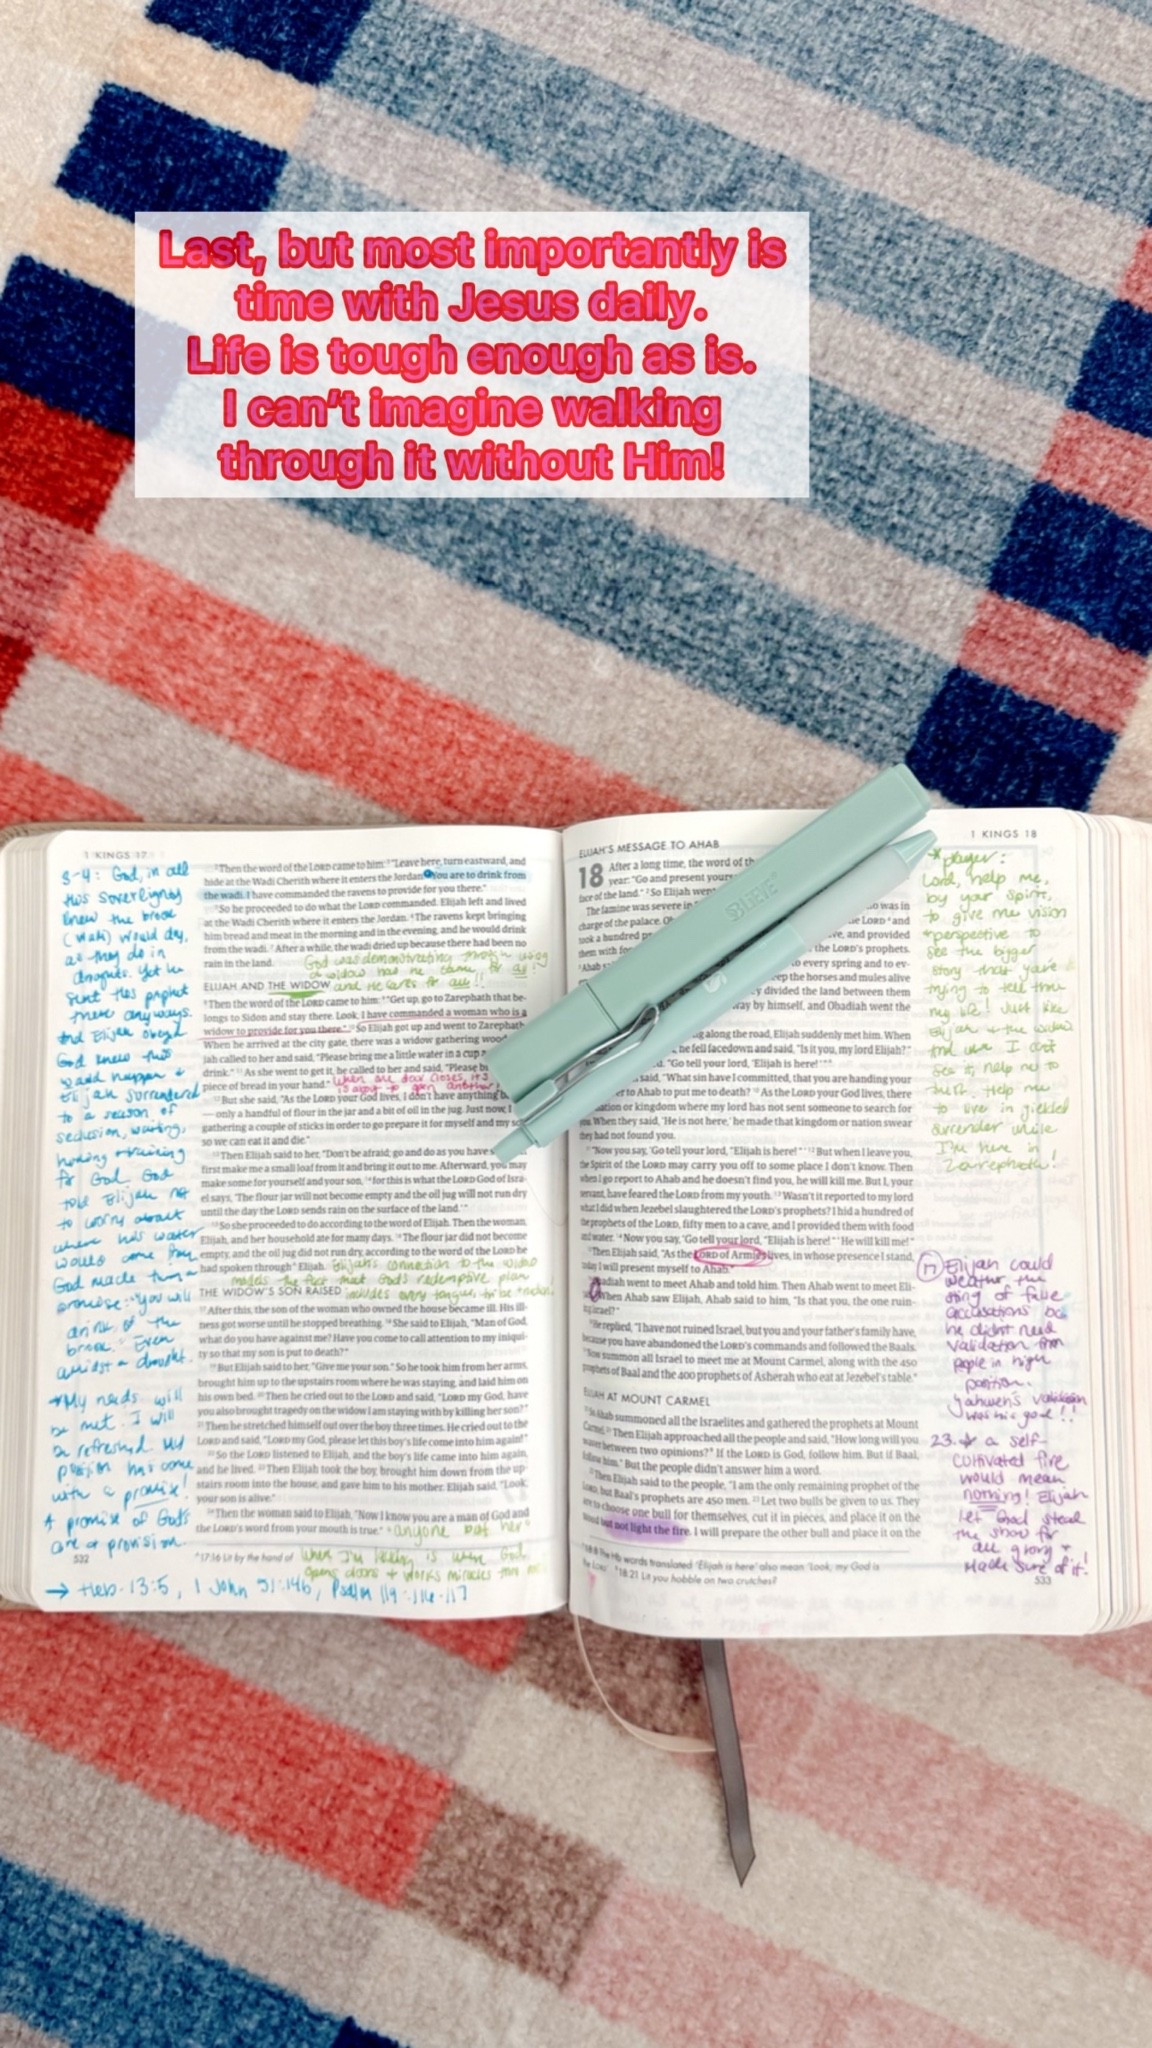 Last, but most importantly is
time with Jesus daily.
Life is tough enough as is.
I can't imagine walking
through it without Him!
1 KINGS 17
3-4: God, in all
His sovereignty
knew the brook
(wadi) would dry,
as they do in
droughts. Yet he
sent His prophet
there anyways.
And Elijah obeyed
God knew this
would happen &
Elijah surrendered
to a season of
seclusion, waiting,
honing & training
for God. God
told Elijah not
to worry about
where his water
would come from
God made him a
promise: "you will
drink of the
brook." Even
amidst a drought.
→ My needs will
be met. I will
be refreshed. My
position has come
with a promise!
A promise of God's
care & provision.
532
→ Heb. 13:5, 1 John 5:14b, Psalm 119:116-117
²Then the word of the LORD came to him: ³"Leave here, turn eastward, and
hide at the Wadi Cherith where it enters the Jordan. ⁴You are to drink from
the wadi. I have commanded the ravens to provide for you there."
⁵So he proceeded to do what the LORD commanded. Elijah left and lived
at the Wadi Cherith where it enters the Jordan. ⁶The ravens kept bringing
him bread and meat in the morning and in the evening, and he would drink
from the wadi. ⁷After a while, the wadi dried up because there had been no
rain in the land.
God was demonstrating through using
a widow has he came for all!
ELIJAH AND THE WIDOW
and He cares for all!!
⁸Then the word of the LORD came to him: ⁹"Get up, go to Zarephath that be-
longs to Sidon and stay there. Look, I have commanded a woman who is a
widow to provide for you there." ¹⁰So Elijah got up and went to Zarephath.
When he arrived at the city gate, there was a widow gathering wood
jah called to her and said, "Please bring me a little water in a cup a
drink." ¹¹As she went to get it, he called to her and said, "Please b
piece of bread in your hand."
When one door closes, it's
is about to open another!
¹²But she said, "As the LORD your God lives, I don't have anything b
—only a handful of flour in the jar and a bit of oil in the jug. Just now, I
gathering a couple of sticks in order to go prepare it for myself and my so
so we can eat it and die."
¹³Then Elijah said to her, "Don't be afraid; go and do as you have s
first make me a small loaf from it and bring it out to me. Afterward, you may
make some for yourself and your son, ¹⁴for this is what the LORD God of Isra-
el says, 'The flour jar will not become empty and the oil jug will not run dry
until the day the LORD sends rain on the surface of the land.'"
¹⁵So she proceeded to do according to the word of Elijah. Then the woman,
Elijah, and her household ate for many days. ¹⁶The flour jar did not become
empty, and the oil jug did not run dry, according to the word of the LORD he
had spoken through Elijah.
Elijah's connection to the widow
models the fact that God's redemptive plan
THE WIDOW'S SON RAISED
includes every tongue, tribe & nation!
¹⁷After this, the son of the woman who owned the house became ill. His ill-
ness got worse until he stopped breathing. ¹⁸She said to Elijah, "Man of God,
what do you have against me? Have you come to call attention to my iniqui-
ty so that my son is put to death?"
¹⁹But Elijah said to her, "Give me your son." So he took him from her arms,
brought him up to the upstairs room where he was staying, and laid him on
his own bed. ²⁰Then he cried out to the LORD and said, "LORD my God, have
you also brought tragedy on the widow I am staying with by killing her son?"
²¹Then he stretched himself out over the boy three times. He cried out to the
LORD and said, "LORD my God, please let this boy's life come into him again!"
²²So the LORD listened to Elijah, and the boy's life came into him again,
and he lived. ²³Then Elijah took the boy, brought him down from the up-
stairs room into the house, and gave him to his mother. Elijah said, "Look,
your son is alive."
²⁴Then the woman said to Elijah, "Now I know you are a man of God and
the LORD's word from your mouth is true."
"anyone but her"
17:16 Lit by the hand of
is when God
opens doors & works miracles
1 KINGS 18
ELIJAH'S MESSAGE TO AHAB
18 After a long time, the word of th
year: "Go and present yours
face of the land." ²So Elijah went
The famine was severe in
o was in
charge of the palace. O
he LORD ⁴and
took a hundred p
ve, and provided
them with foo
the LORD's prophets.
Ahab s
to every spring and to ev-
ep the horses and mules alive
y divided the land between them
way by himself, and Obadiah went the
ng along the road, Elijah suddenly met him. When
he fell facedown and said, "Is it you, my lord Elijah?"
d. "Go tell your lord, 'Elijah is here!'"
said, "What sin have I committed, that you are handing your
er to Ahab to put me to death? ¹⁰As the LORD your God lives, there
ation or kingdom where my lord has not sent someone to search for
you. When they said, 'He is not here,' he made that kingdom or nation swear
they had not found you.
¹¹"Now you say, 'Go tell your lord, "Elijah is here!"' ¹²But when I leave you,
the Spirit of the LORD may carry you off to some place I don't know. Then
when I go report to Ahab and he doesn't find you, he will kill me. But I, your
servant, have feared the LORD from my youth. ¹³Wasn't it reported to my lord
what I did when Jezebel slaughtered the LORD's prophets? I hid a hundred of
the prophets of the LORD, fifty men to a cave, and I provided them with food
and water. ¹⁴Now you say, 'Go tell your lord, "Elijah is here!"' He will kill me!"
¹⁵Then Elijah said, "As the LORD of Armies lives, in whose presence I stand,
today I will present myself to Ahab."
adiah went to meet Ahab and told him. Then Ahab went to meet Eli-
When Ahab saw Elijah, Ahab said to him, "Is that you, the one ruin-
ing Israel?"
¹⁸He replied, "I have not ruined Israel, but you and your father's family have,
because you have abandoned the LORD's commands and followed the Baals.
¹⁹Now summon all Israel to meet me at Mount Carmel, along with the 450
prophets of Baal and the 400 prophets of Asherah who eat at Jezebel's table."
ELIJAH AT MOUNT CARMEL
²⁰So Ahab summoned all the Israelites and gathered the prophets at Mount
Carmel. ²¹Then Elijah approached all the people and said, "How long will you
waver between two opinions? If the LORD is God, follow him. But if Baal,
follow him." But the people didn't answer him a word.
²²Then Elijah said to the people, "I am the only remaining prophet of the
LORD, but Baal's prophets are 450 men. ²³Let two bulls be given to us. They
are to choose one bull for themselves, cut it in pieces, and place it on the
wood but not light the fire. I will prepare the other bull and place it on the
18:8 The Hb words translated 'Elijah is here' also mean 'Look, my God is
the LORD' 18:21 Lit you hobble on two crutches?
533
* prayer:
Lord, help me,
by your Spirit,
to give me vision
& perspective to
see the bigger
story that you're
trying to tell thru
my life! Just like
Elijah & the widow
And when I can't
see it, help me to
trust. Help me
to live in yielded
surrender while
I'm here in
Zarephath!
17 Elijah could
weather the
sting of false
accusations bc
he didn't need
validation from
people in high
position.
Yahweh's validation
was his goal!!
23. * a self-
cultivated fire
would mean
nothing! Elijah
let God steal
the show for
all glory &
made sure of it!